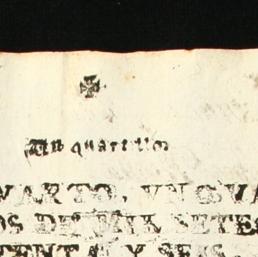 Un quartillo
VARTO, VN QVA
OS DE MIL SETE
ENTA Y SEIS.